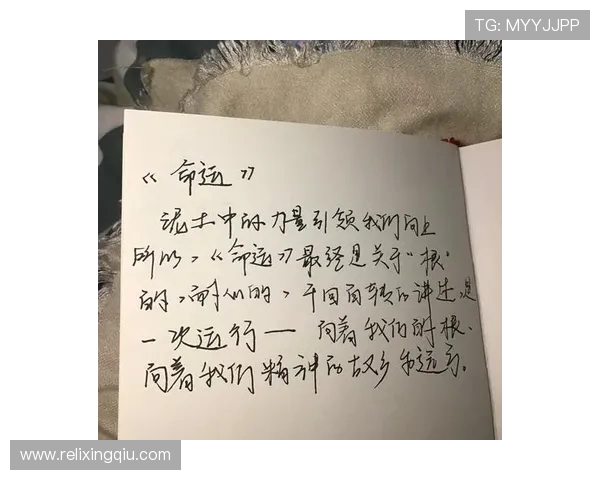 TG: MYYJJPP
《命运》
泥土中的力量引领我们向上
所以，《命运》最终是关于“根”
的，耐人的，千回百转的讲述，是
一次运行一 向着我们的根、
向着我们精神的故乡和远方。
www.relixingqiu.com